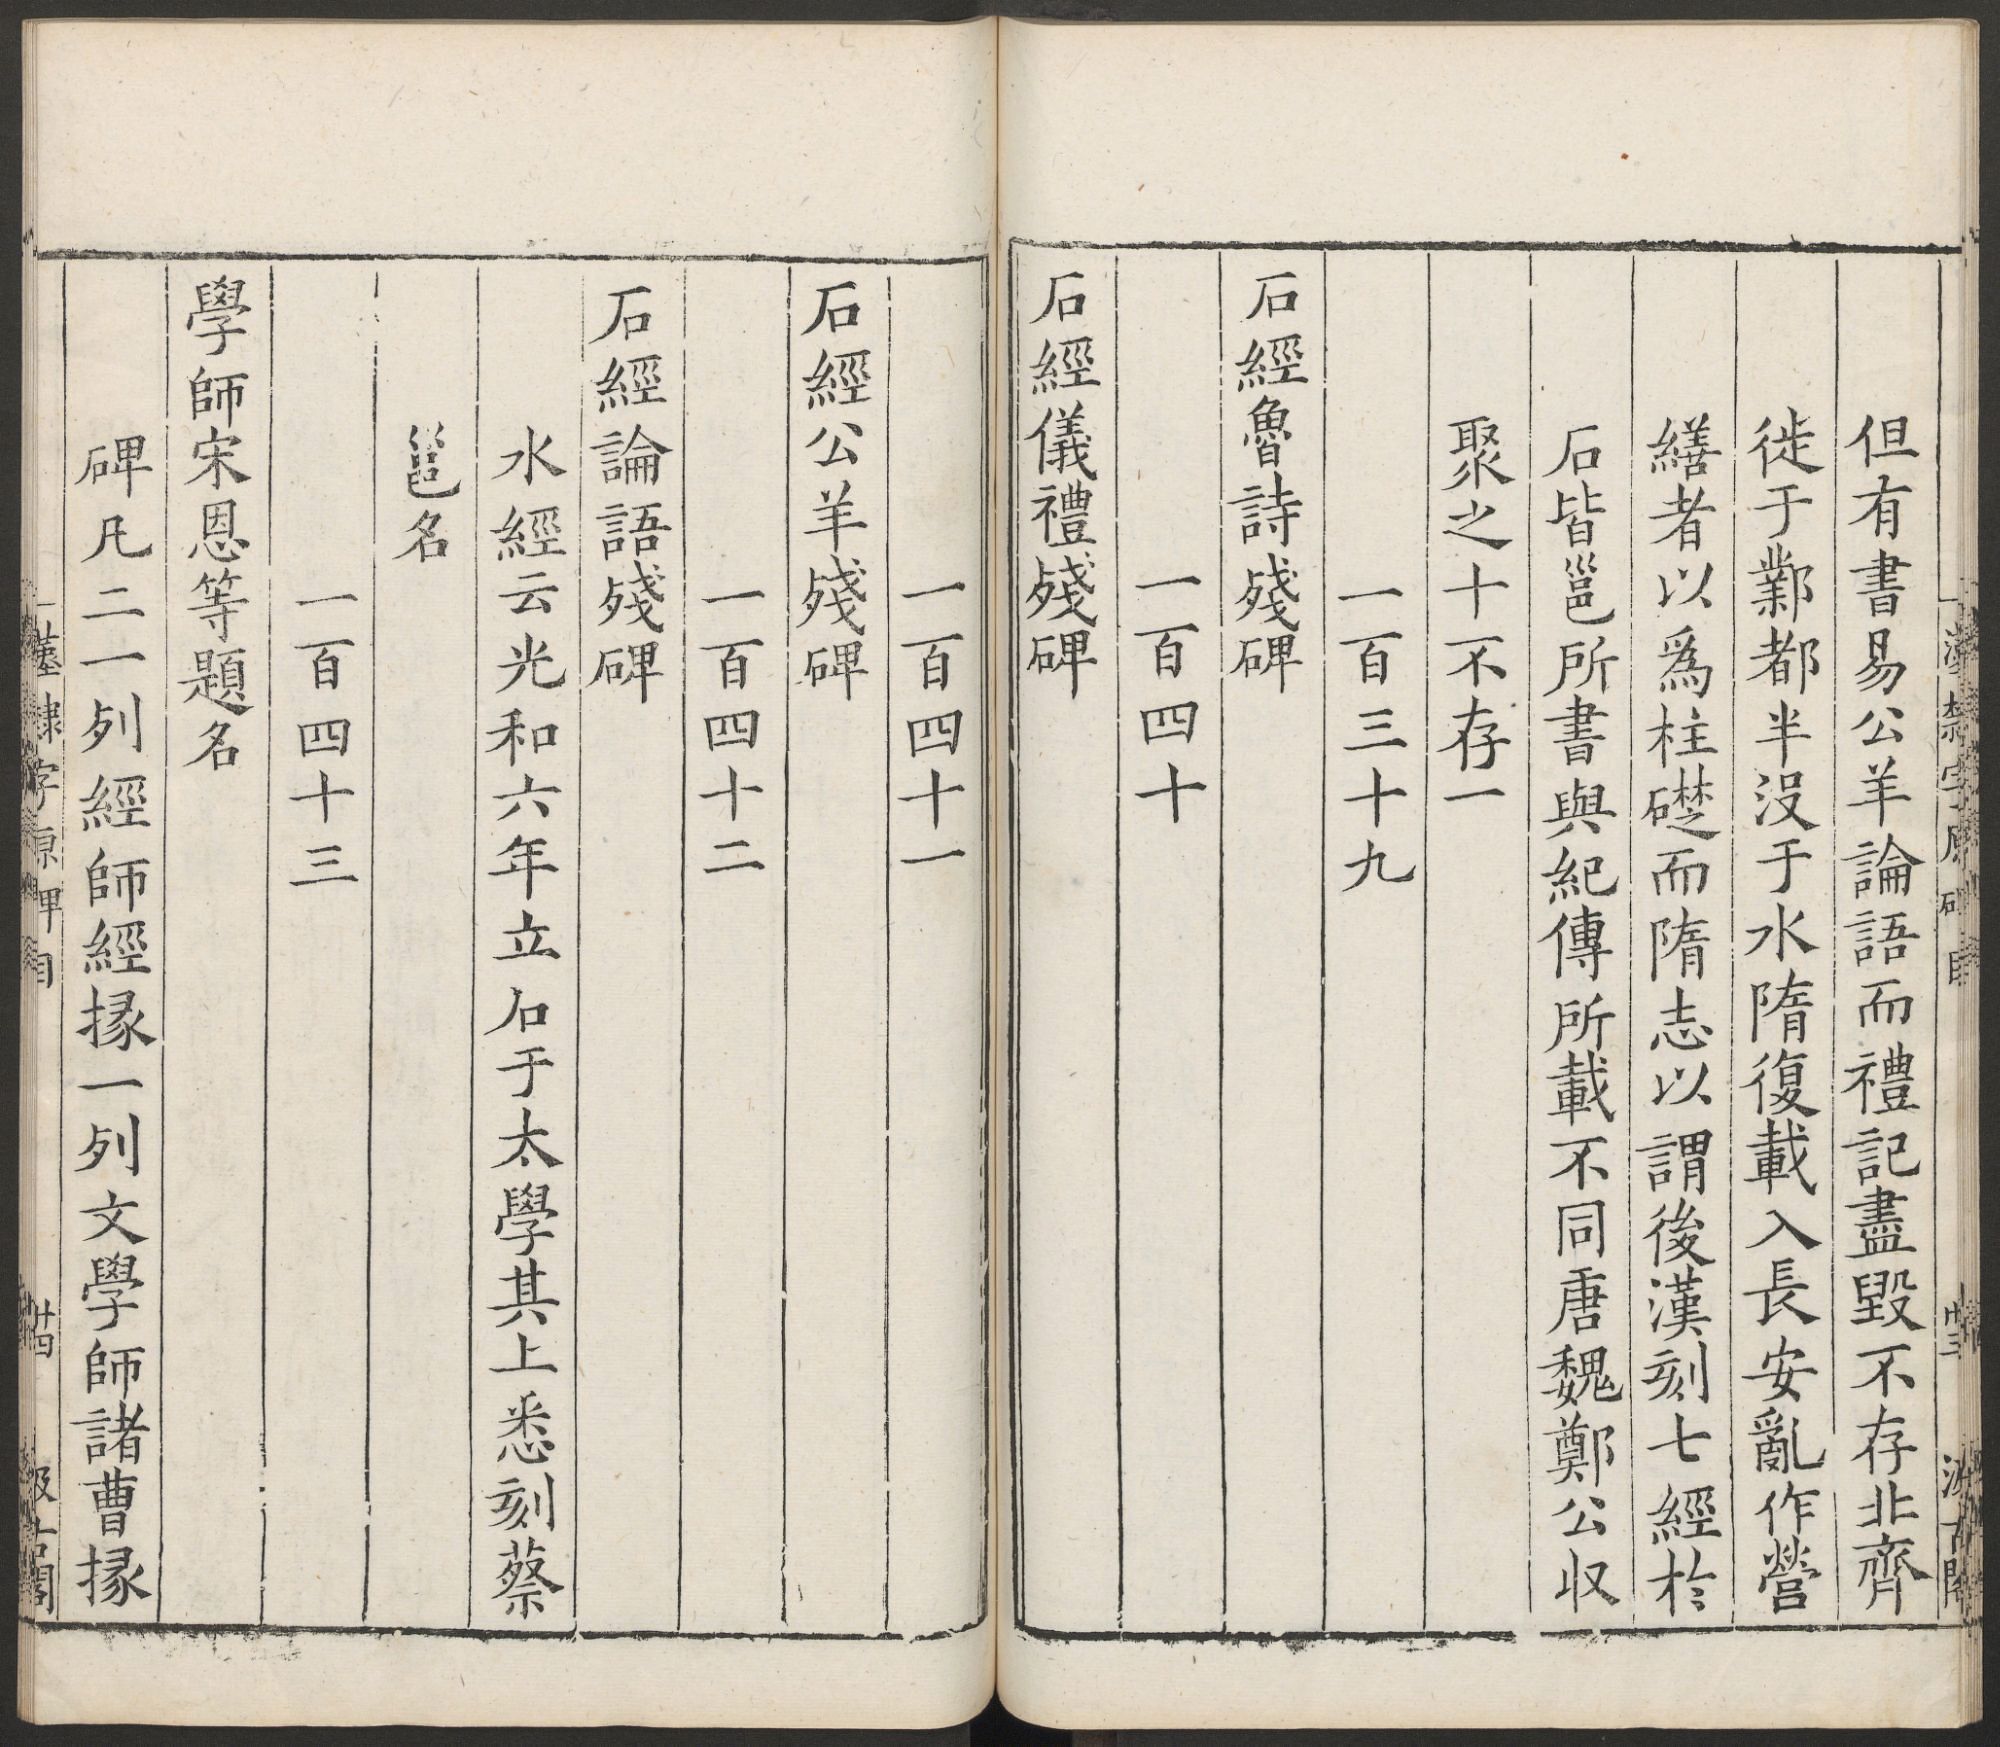 但有書易公羊論語而禮記盡毀不存北齊
徙于鄴都半沒于水隋復載入長安亂作營
繕者以爲柱礎而隋志以謂後漢刻七經於
石皆邕所書與紀傳所載不同唐魏鄭公收
聚之十不存一
一百三十九
石經魯詩殘碑
一百四十
石經儀禮殘碑
一百四十一
石經公羊殘碑
一百四十二
石經論語殘碑
水經云光和六年立石于太學其上悉刻蔡
邕名
一百四十三
學師宋恩等題名
碑凡二一列經師經掾一列文學師諸曹掾
隸字原碑目
廿四
汲古閣